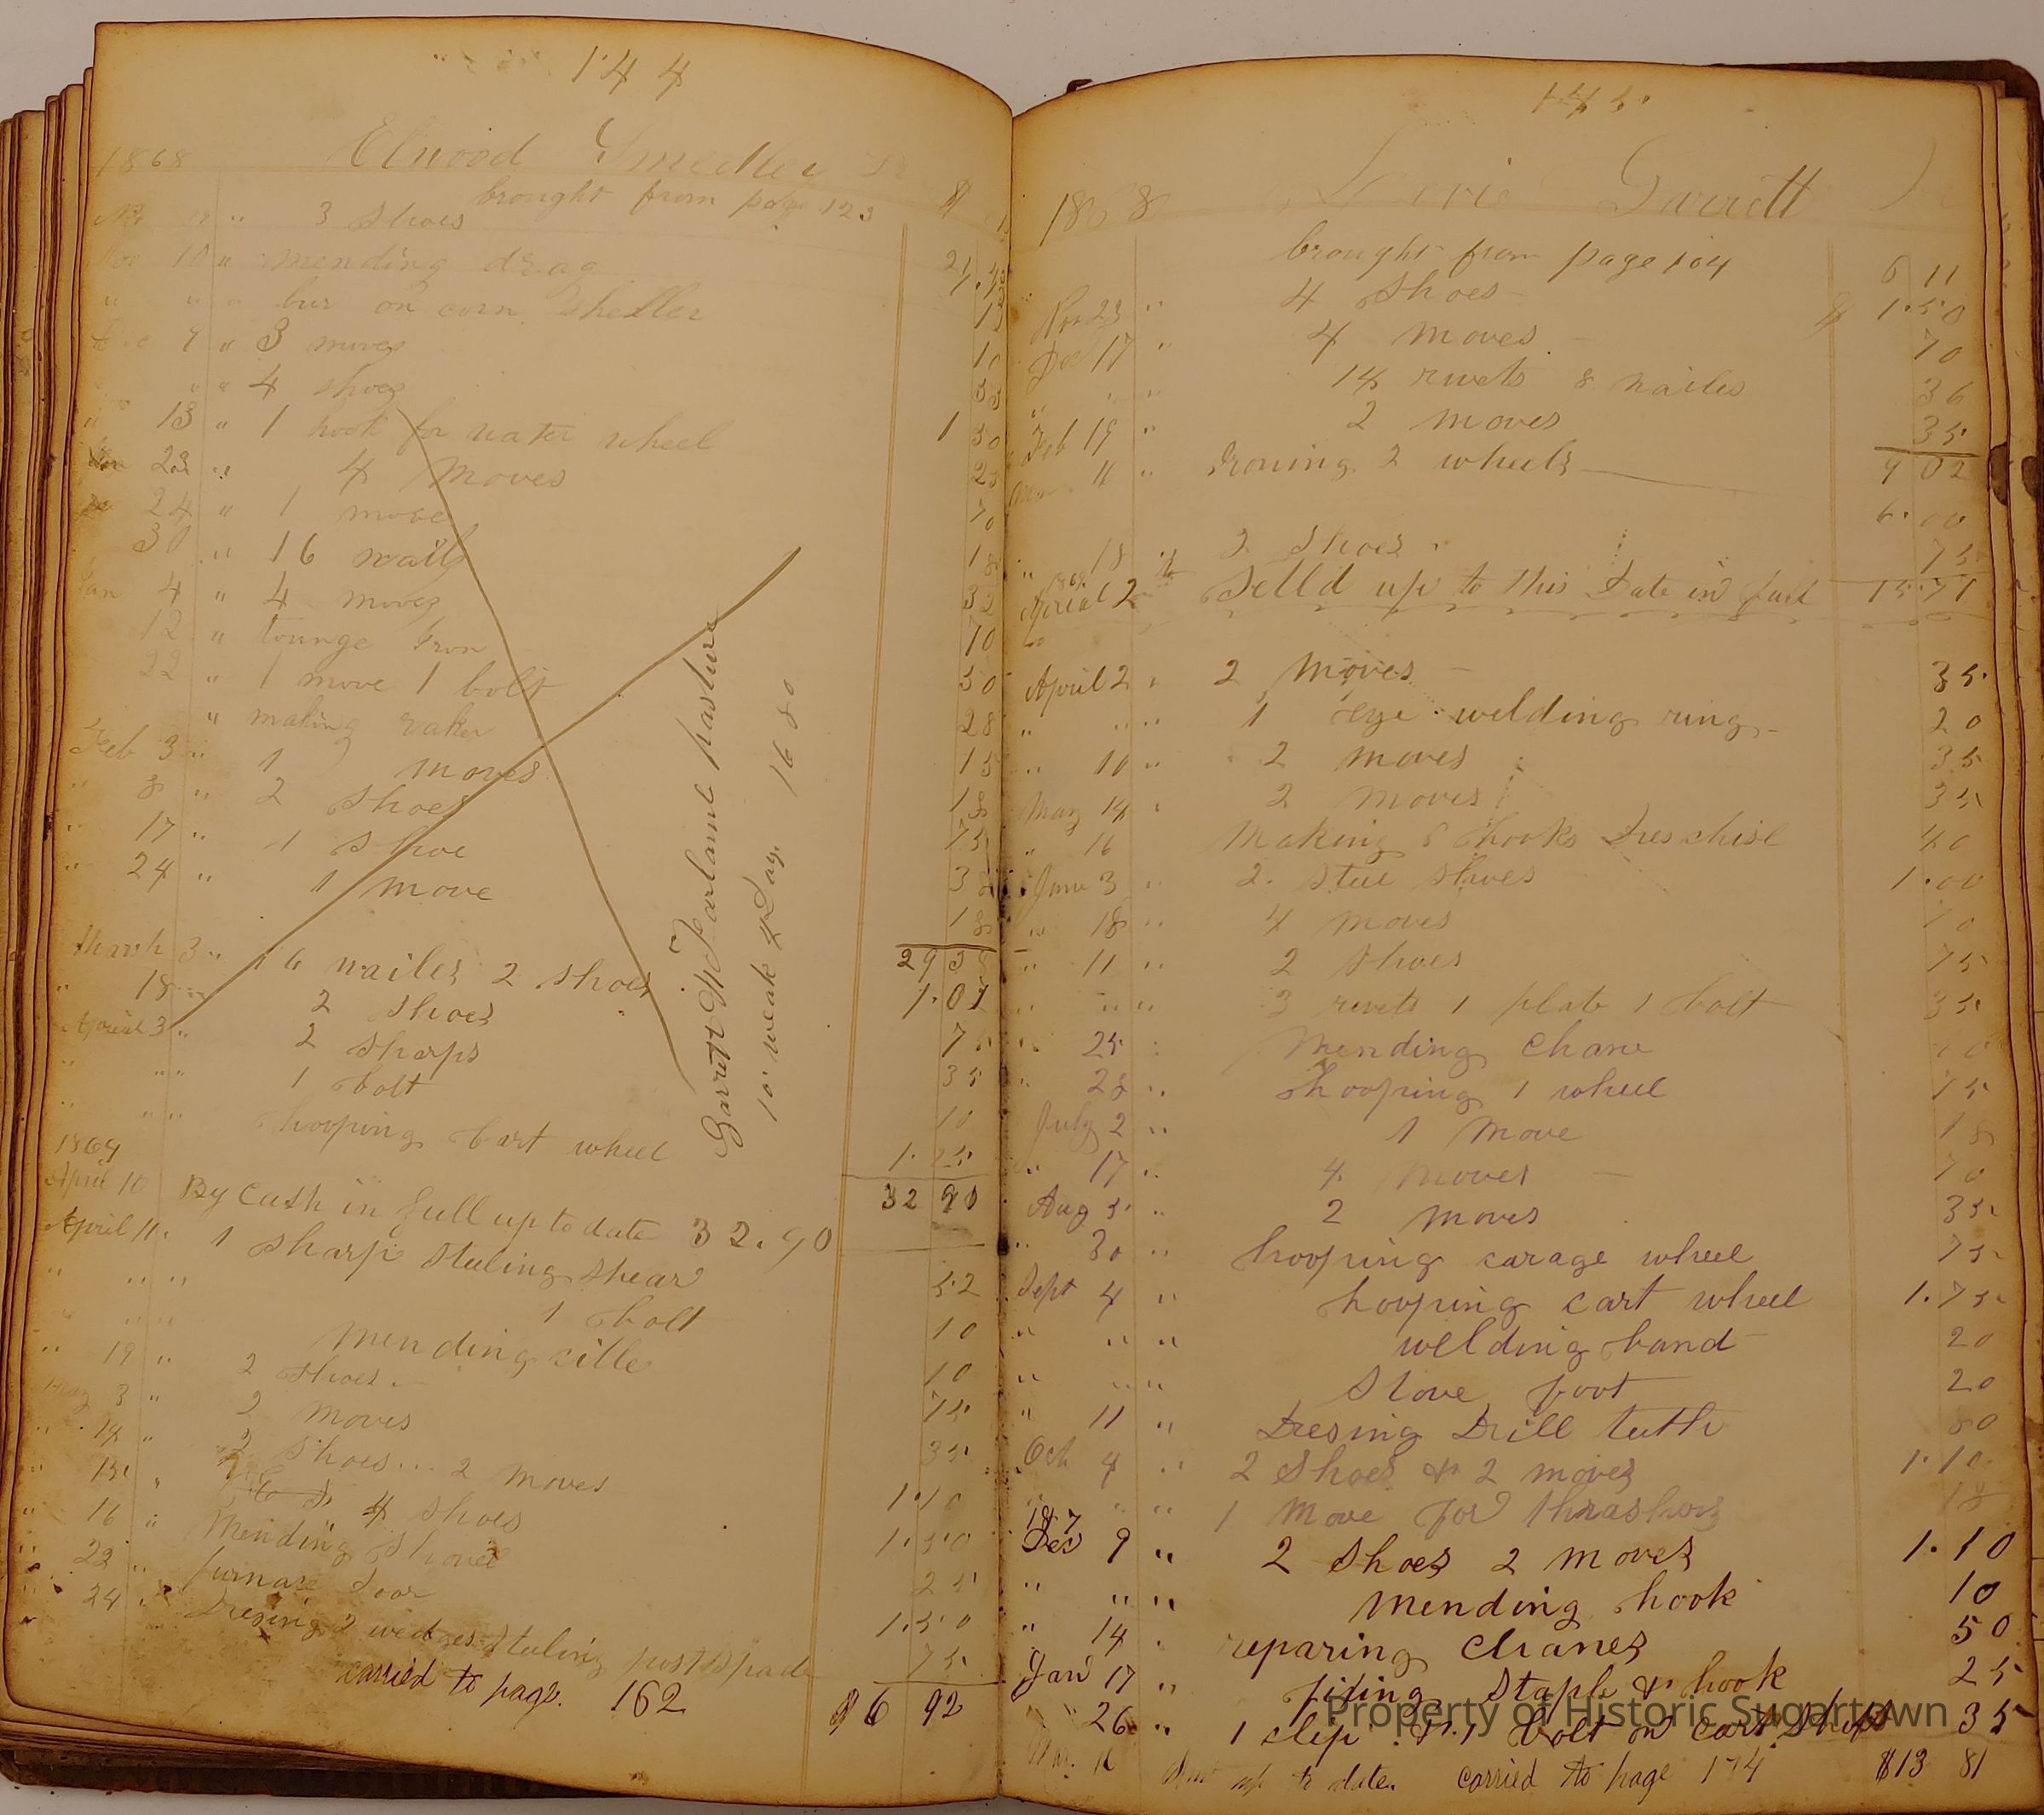 144
1868 Elwood Smedley
brought from page 123 $
" 3 Shoes
Nov 10 " mending drag
" " " bur on corn sheller
Dec 9 " 3 moves
" " 4 shoes
" 13 " 1 hook for water wheel 1 50
23 " 4 Moves
24 " 1 move
30 " 16 nails
Jan 4 " 4 moves
12 " tounge Iron 50
22 " 1 move 1 bolt 28
" making raker 15
Feb 3 " 1 moves 18
" 8 " 2 Shoes 75
" 17 " 1 Shoe
" 24 " 1 Move 18
29 38
March 3 " 16 nailes 2 shoes 1.07
" 18 " 2 Shoes 75
April 3 " 2 Sharps 35
" " " 1 bolt 10
" " " hooping Cart wheel 1.25
1869
32 90
April 10 By Cash in full up to date 32.90
April 11. 1 Sharp Steling Shear 52
" " " 1 bolt 10
" " " Mending cille 10
" 19 " 2 Shoes. 75
May 3 " 2 Moves 35
" 14 " 2 Shoes... 2 Moves 1.10
" 15 " 4 Shoes 1.50
" 16 " Mending Shovel 25
" 22 " furnace Door 1.50
" 24 " Dresing 2 wedges Steling post Spade 75
carried to page. 162 $6 92
Garrett McFarland pasture
10 weak 4 Day. 16 80
145
1868 Garrett
brought from page 104 6 11
Nov 23 " 4 Shoes $ 1.50
Dec 17 " 4 Moves 70
" " " 14 rivets 8 nailes 36
Feb 19 " 2 Moves 35
9 02
Mar. 11 " Ironing 2 wheels 6.00
" 18 " 2 Shoes 75
1869
Aprial 2 Setld up to this Date in full 15.77
April 2 " 2 Moves 35
" " " 1 Eye welding ring 20
" 10 " 2 Moves 35
May 14 " 2 Moves 35
" 16 Making hooks Dres chisl 40
June 3 " 2. Stee Shoes 1.00
" 18 " 4 Moves 70
" 11 " 2 Shoes 75
" " " 3 rivets 1 plate 1 bolt 35
" 25 " Mending Chane 10
" 28 " hooping 1 wheel 75
July 2 " 1 Move 18
" 17 " 4 Moves 70
Aug 5 " 2 Moves 35
" 30 " hooping carage wheel 75
Sept 4 " hooping cart wheel 1.75
" " " welding band 20
" " " Stove foot 20
" 11 " Dresing Drill teeth 80
Oct 4 " 2 Shoes & 2 moves 1.10
" " " 1 Move for thrashers 18
187
Dec 9 " 2 Shoes 2 Moves 1.10
" " " Mending hook 10
" 14 " reparing Chanes 50
Jan 17 " fixing Staple & hook 25
" 26 " 1 clip & 1 bolt on cart Shafts 35
Mar. 16 up to date. carried to page 174 $13 81
Property of Historic Sugartown